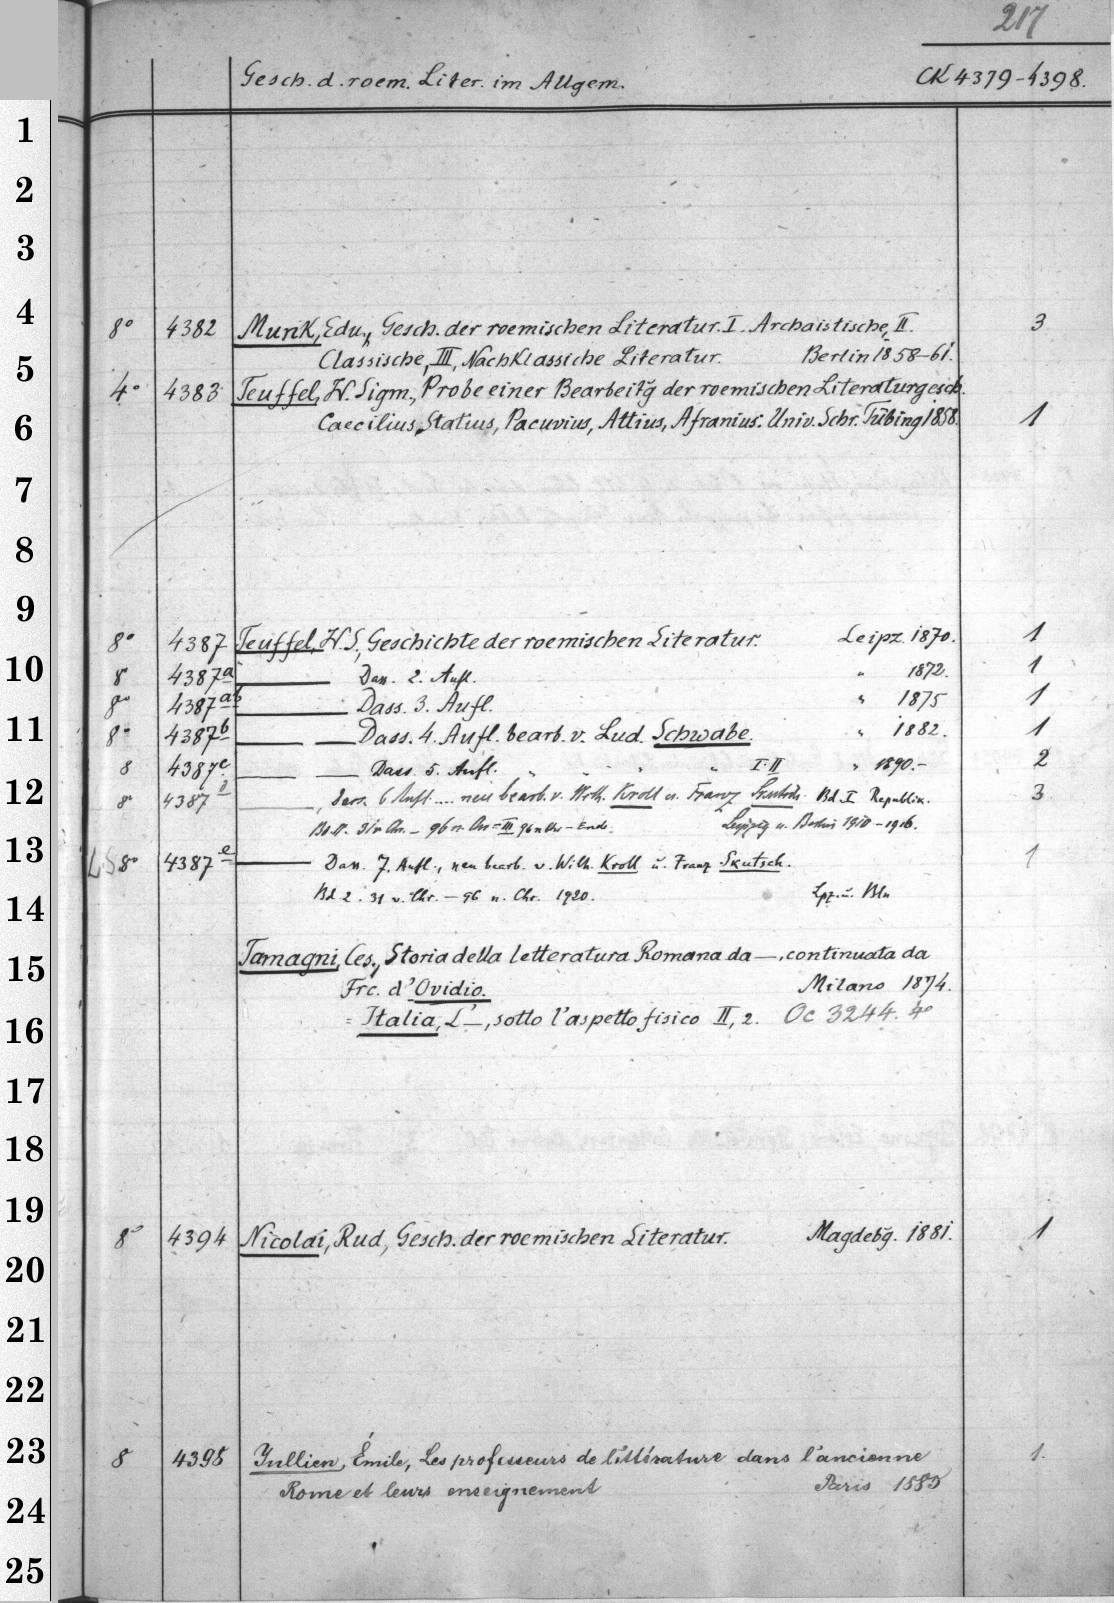 217
Gesch. d. roem. Liter. im Allgem. CK 4379-4398.
8° 4382 Munk, Edu., Gesch. der roemischen Literatur. I. Archaistische, II. 3
Classische, III, Nachklassiche Literatur. Berlin 1858-61.
4° 4383 Teuffel, W. Sigm., Probe einer Bearbeitg der roemischen Literaturgesch.
Caecilius Statius, Pacuvius, Attius, Afranius. Univ. Schr. Tübing 1858. 1
8° 4387 Teuffel, W. S., Geschichte der roemischen Literatur. Leipz. 1870. 1
8° 4387a ___ Dass. 2. Aufl. " 1872. 1
8° 4387ab ___ Dass. 3. Aufl. " 1875 1
8° 4387b ___ ___ Dass. 4. Aufl. bearb. v. Lud. Schwabe. " 1882. 1
8 4387c ___ ___ Dass. 5. Aufl. " " " " I-II " 1890.- 2
8° 4387d ___, Dass. 6 Aufl. .... neu bearb. v. Wilh. Kroll u. Franz Skutsch. Bd. I Republik. 3
Bd. II. 31 v. Chr. - 96 n. Chr = III 96 n Chr - Ende. Leipzig u. Berlin 1910-1916.
LS 8° 4387e ___ Dass. 7. Aufl., neu bearb. v. Wilh. Kroll u. Franz Skutsch. 1
Bd 2. 31 v. Chr. - 96 n. Chr. 1920. Lpz. u. Bln
Tamagni, Ces., Storia della letteratura Romana da —, continuata da
Frc. d'Ovidio. Milano 1874.
= Italia, L'—, sotto l'aspetto fisico II, 2. Oc 3244. 4°
8° 4394 Nicolai, Rud, Gesch. der roemischen Literatur. Magdebg. 1881. 1
8 4398 Jullien, Émile, Les professeurs de littérature dans l'ancienne 1.
Rome et leurs enseignement Paris 1885
1
2
3
4
5
6
7
8
9
10
11
12
13
14
15
16
17
18
19
20
21
22
23
24
25